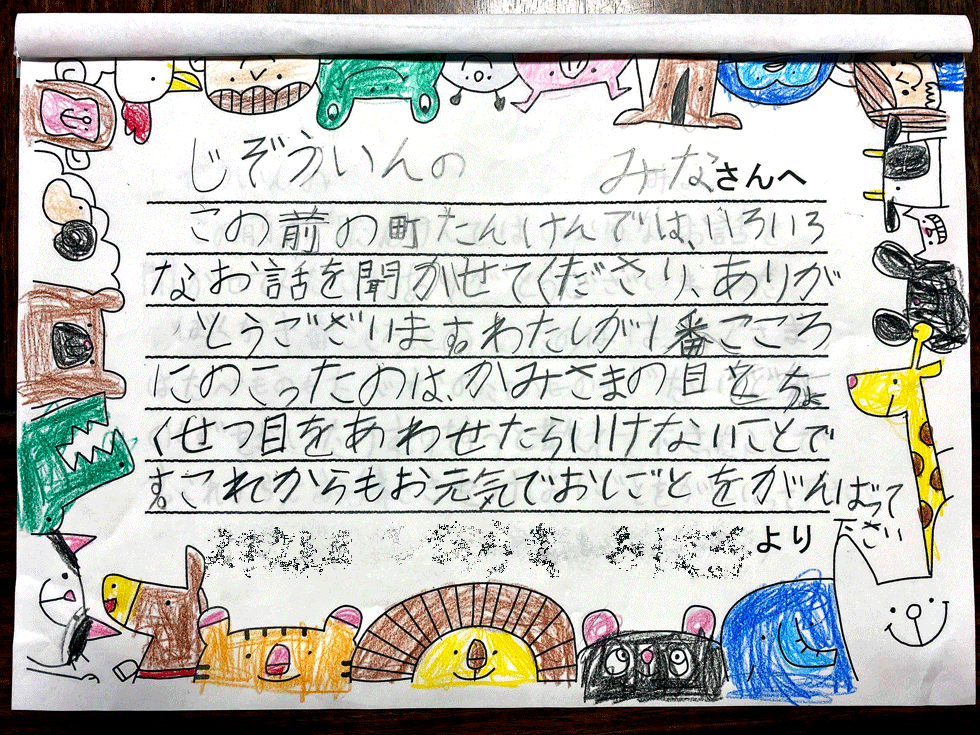 じぞういんの みなさんへ
この前の町たんけんでは、いろいろ
なお話を聞かせてくださり、ありが
とうございます。わたしが1番こころ
にのこったのは、かみさまの目をちょ
くせつ目をあわせたらいけないことで
す。これからもお元気でおしごとをがんばって
ださい
より